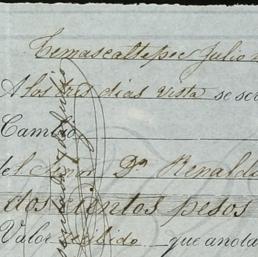 Temascaltepec Julio
A los tres dias vista se ser
Cambio
del Señor Dn. Renald
doscientos pesos
Valor recibido que anota